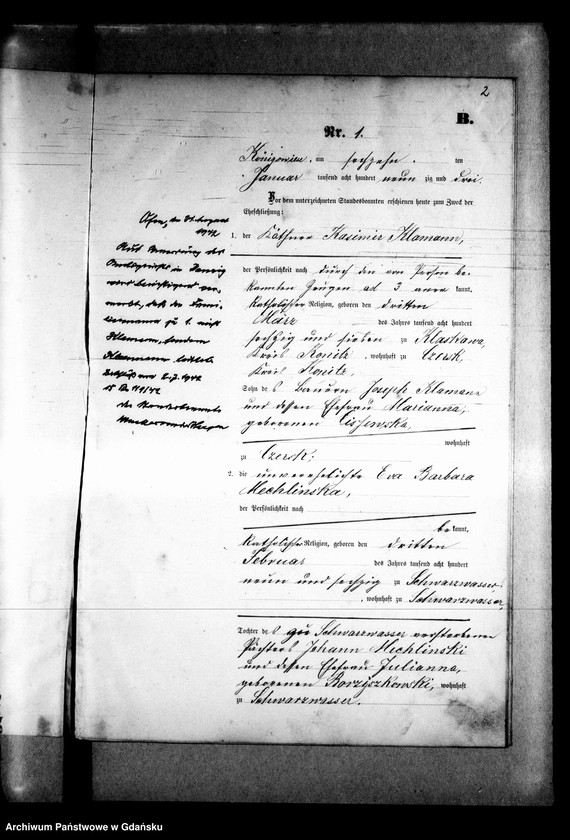 2
B.
Nr. 1.
am sechzehn ten
Januar tausend acht hundert neun zig und drei.
Vor dem unterzeichneten Standesbeamten erschienen heute zum Zweck der
Eheschließung:
1. der Käthner Kasimir Klamann,
der Persönlichkeit nach durch die von Person be-
kannten Zeugen ad 3 aner kannt,
katholischer Religion, geboren den dritten
März des Jahres tausend acht hundert
sechzig und sieben zu
Kreis Konitz, wohnhaft zu Czersk
Kreis Konitz,
Sohn des Bauern Joseph Klamann
und dessen Ehefrau Marianna,
geborenen Ciszewska,
wohnhaft
zu Czersk;
2. die unverehelichte Eva Barbara
Mechlinska,
der Persönlichkeit nach
be kannt,
katholischer Religion, geboren den dritten
Februar des Jahres tausend acht hundert
neun und sechzig zu Schwarzwasser
, wohnhaft zu Schwarzwasser,
Tochter des zu Schwarzwasser verstorbenen
Pächters Johann Mechlinski
und dessen Ehefrau Julianna,
geborenen Borzyszkowski, wohnhaft
zu Schwarzwasser.
1942
Auf Anordnung des
Amtsgerichts in Danzig
wird berichtigend ver-
merkt, daß der Fami-
lienname zu 1. nicht
Klamann, sondern
lautet.
1942
Der Standesbeamte
Archiwum Państwowe w Gdańsku